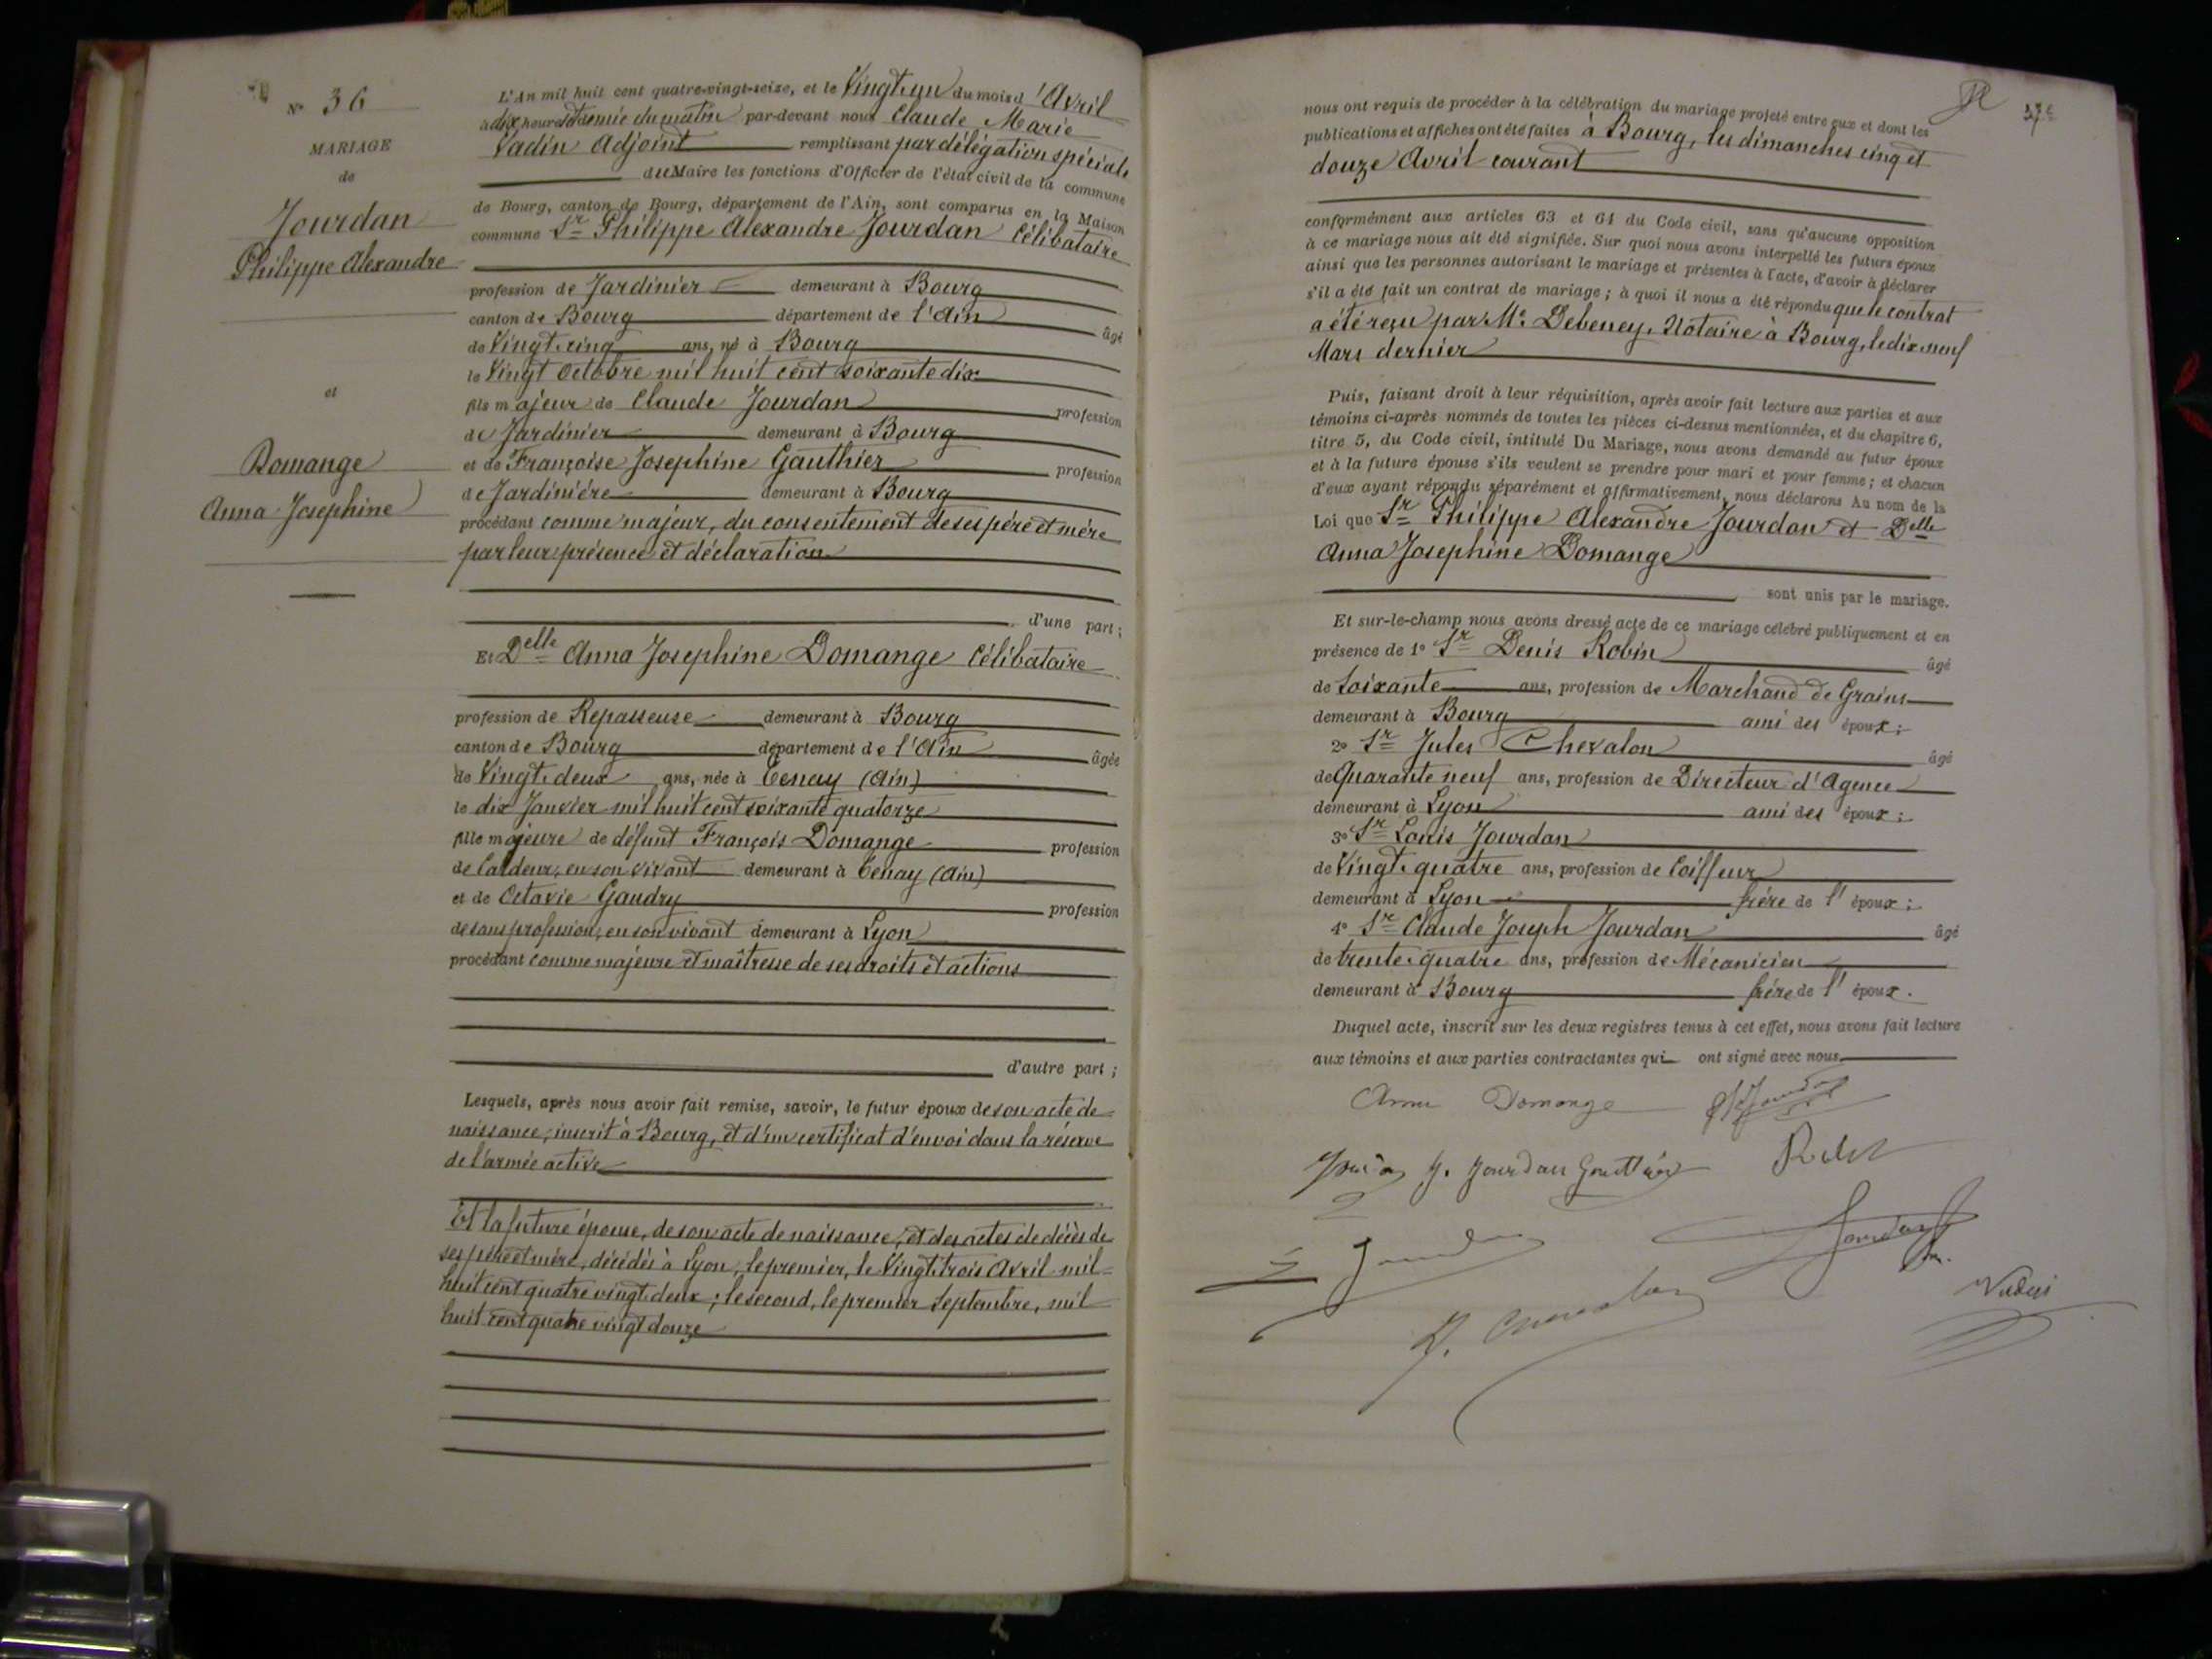 N° 36
MARIAGE
de
Jourdan
Philippe Alexandre
et
Domange
Anna Josephine
L'An mil huit cent quatre-vingt-seize, et le Vingt-un du mois d'Avril
à dix heures et demie du matin par-devant nous Claude Marie
Vadin Adjoint remplissant par délégation spéciale
du Maire les fonctions d'Officier de l'état civil de la commune
de Bourg, canton de Bourg, département de l'Ain, sont comparus en la Maison
commune Sr Philippe Alexandre Jourdan Célibataire
profession de Jardinier demeurant à Bourg
canton de Bourg département de l'Ain âgé
de Vingt-cinq ans, né à Bourg
le Vingt Octobre mil huit cent soixante dix
fils majeur de Claude Jourdan profession
de Jardinier demeurant à Bourg
et de Françoise Josephine Gauthier profession
de Jardinière demeurant à Bourg
procédant comme majeur, du consentement de ses père et mère
par leur présence et déclaration
d'une part;
Et Delle Anna Josephine Domange Célibataire
profession de Repasseuse demeurant à Bourg
canton de Bourg département de l'Ain âgée
de Vingt-deux ans, née à Tenay (Ain)
le dix Janvier mil huit cent soixante quatorze
fille majeure de défunt François Domange profession
de Cardeur, en son vivant demeurant à Tenay (Ain)
et de Octavie Gaudry profession
de sans profession, en son vivant demeurant à Lyon
procédant comme majeure et maîtresse de ses droits et actions
d'autre part;
Lesquels, après nous avoir fait remise, savoir, le futur époux de son acte de
naissance, inscrit à Bourg, et d'un certificat d'envoi dans la réserve
de l'armée active
Et la future épouse, de son acte de naissance, et des actes de décès de
ses père et mère, décédés à Lyon, le premier, le Vingt-trois Avril mil
huit cent quatre vingt-deux; le second, le premier Septembre, mil
huit cent quatre vingt douze
nous ont requis de procéder à la célébration du mariage projeté entre eux et dont les
publications et affiches ont été faites à Bourg, les dimanches cinq et
douze Avril courant
conformément aux articles 63 et 64 du Code civil, sans qu'aucune opposition
à ce mariage nous ait été signifiée. Sur quoi nous avons interpellé les futurs époux
ainsi que les personnes autorisant le mariage et présentes à l'acte, d'avoir à déclarer
s'il a été fait un contrat de mariage; à quoi il nous a été répondu que le contrat
a été reçu par Me Debeney, Notaire à Bourg, le dix-neuf
Mars dernier
Puis, faisant droit à leur réquisition, après avoir fait lecture aux parties et aux
témoins ci-après nommés de toutes les pièces ci-dessus mentionnées, et du chapitre 6,
titre 5, du Code civil, intitulé Du Mariage, nous avons demandé au futur époux
et à la future épouse s'ils veulent se prendre pour mari et pour femme; et chacun
d'eux ayant répondu séparément et affirmativement, nous déclarons Au nom de la
Loi que Sr Philippe Alexandre Jourdan et Delle
Anna Josephine Domange
sont unis par le mariage.
Et sur-le-champ nous avons dressé acte de ce mariage célébré publiquement et en
présence de 1° Sr Denis Robin âgé
de Soixante ans, profession de Marchand de Grains
demeurant à Bourg ami des époux;
2° Sr Jules Chevalon âgé
de Quarante neuf ans, profession de Directeur d'Agence
demeurant à Lyon ami des époux;
3° Sr Louis Jourdan
de Vingt-quatre ans, profession de Coiffeur
demeurant à Lyon frère de l'époux;
4° Sr Claude Joseph Jourdan âgé
de trente-quatre ans, profession de Mécanicien
demeurant à Bourg frère de l'époux.
Duquel acte, inscrit sur les deux registres tenus à cet effet, nous avons fait lecture
aux témoins et aux parties contractantes qui ont signé avec nous
Anna Domange
J. Jourdan Gauthier
Jourdan
Jourdan
J. Chevalon
Vadin